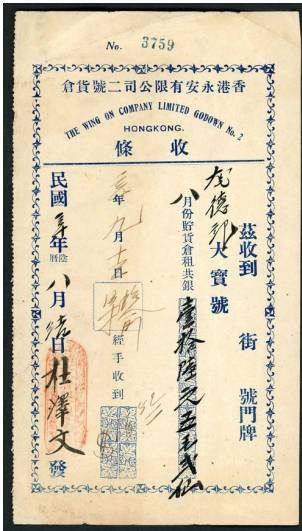 No. 3759
香港永安有限公司二號貨倉
THE WING ON COMPANY LIMITED GODOWN No. 2
HONGKONG.
收條
茲收到 街 號門牌
德 大寶號
八月份貯貨倉租共銀壹拾陸元五毛弍仙
年九月 日 經手收到
民國 年陰曆八月 日杜澤文發